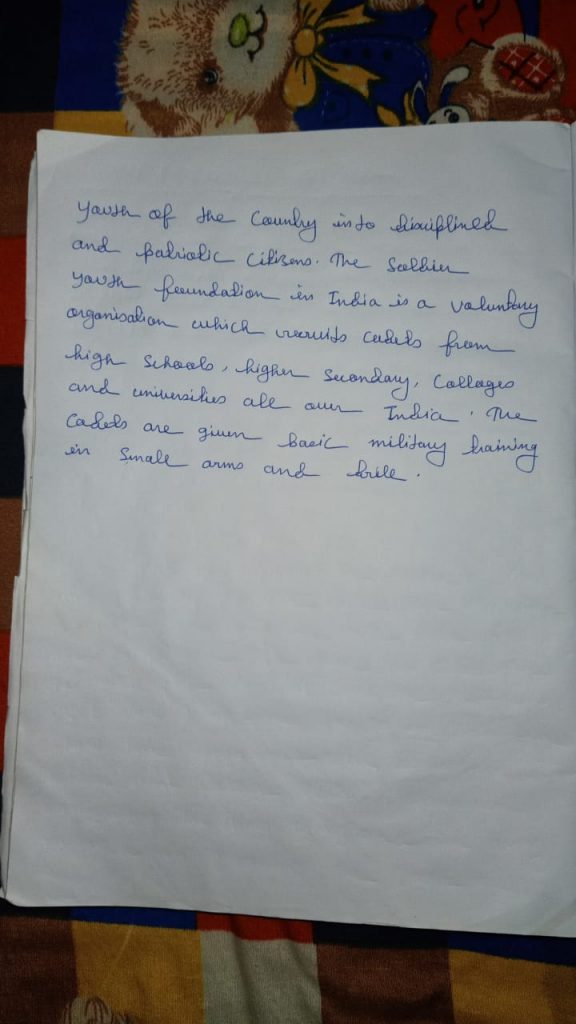 Youth of the Country into disciplined
and patriotic Citizens. The Soldier
youth foundation in India is a voluntary
organisation which recruits cadets from
high Schools, higher Secondary, Collages
and universities all over India. The
Cadets are given basic military training
in Small arms and drill.